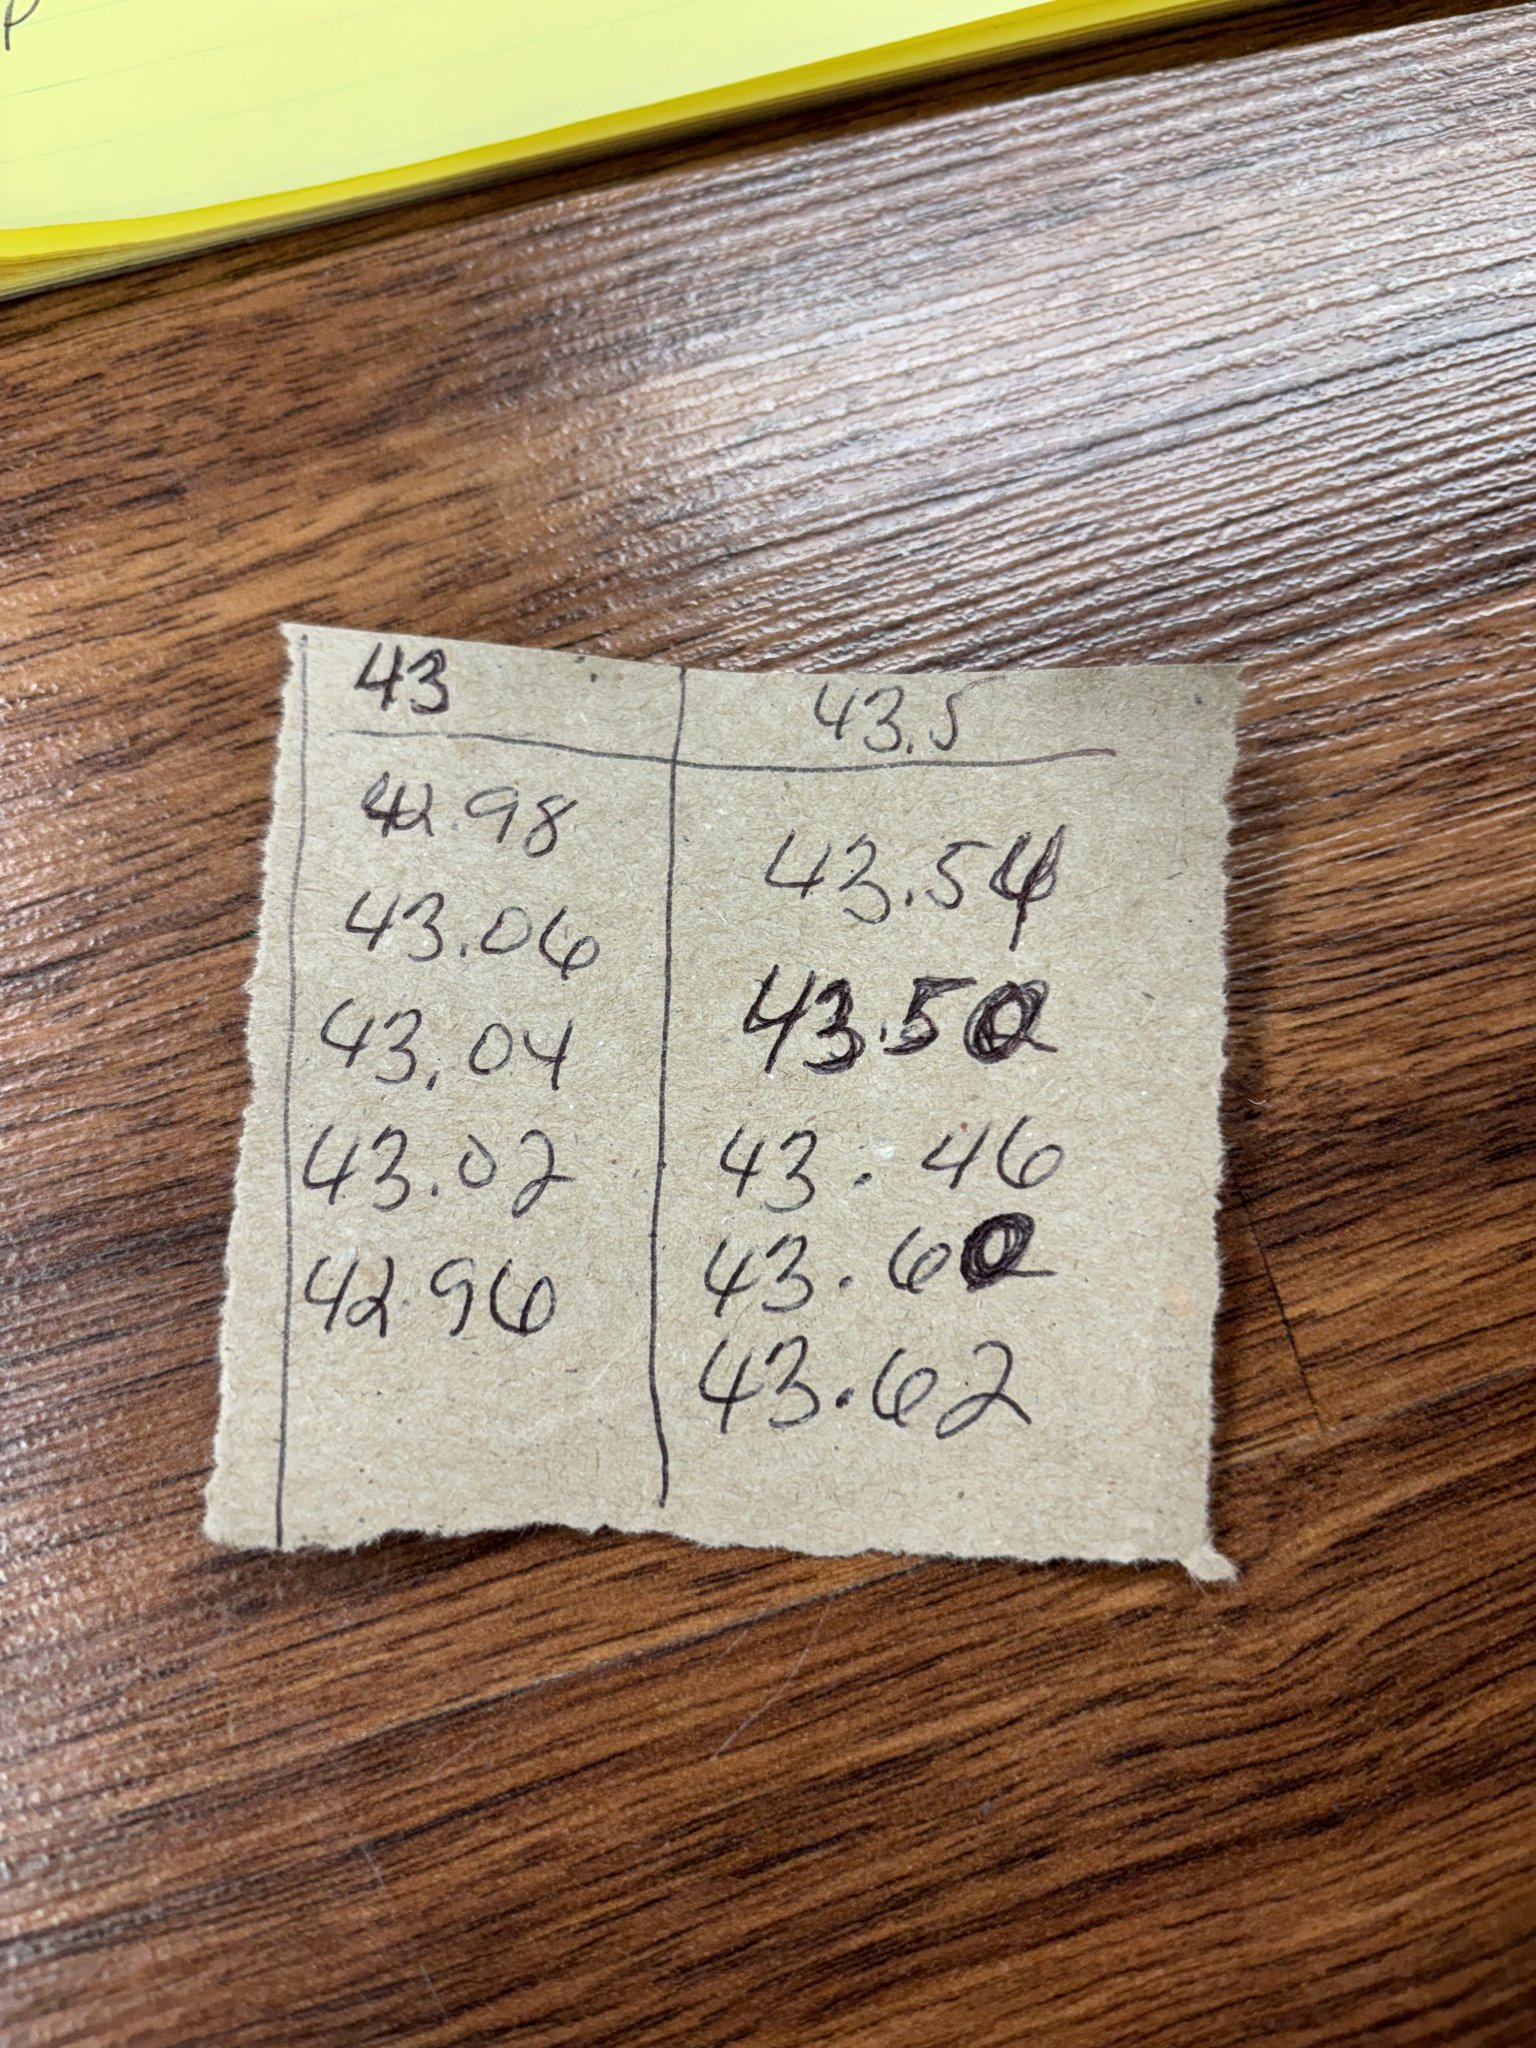 43 43.5
42.98 43.54
43.06 43.50
43.04 43.46
43.02 43.60
42.96 43.62